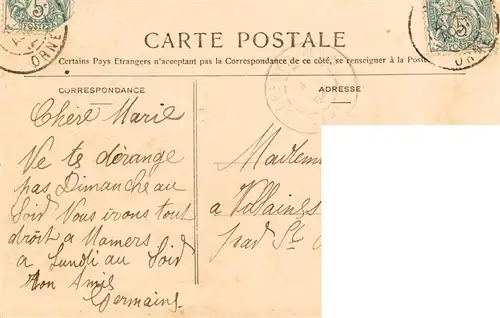 CARTE POSTALE
Certains Pays Etrangers n'acceptent pas la Correspondance de ce côté, se renseigner à la Poste
CORRESPONDANCE
ADRESSE
Chère Marie
Ve te dérange
pas Dimanche au
Soir Vous irons tout
droit a Mamers
a Lundi au Soir
ton Amie
Germaine
Madem
a Villaines
par St
5c
ORNE
5c
ORNE